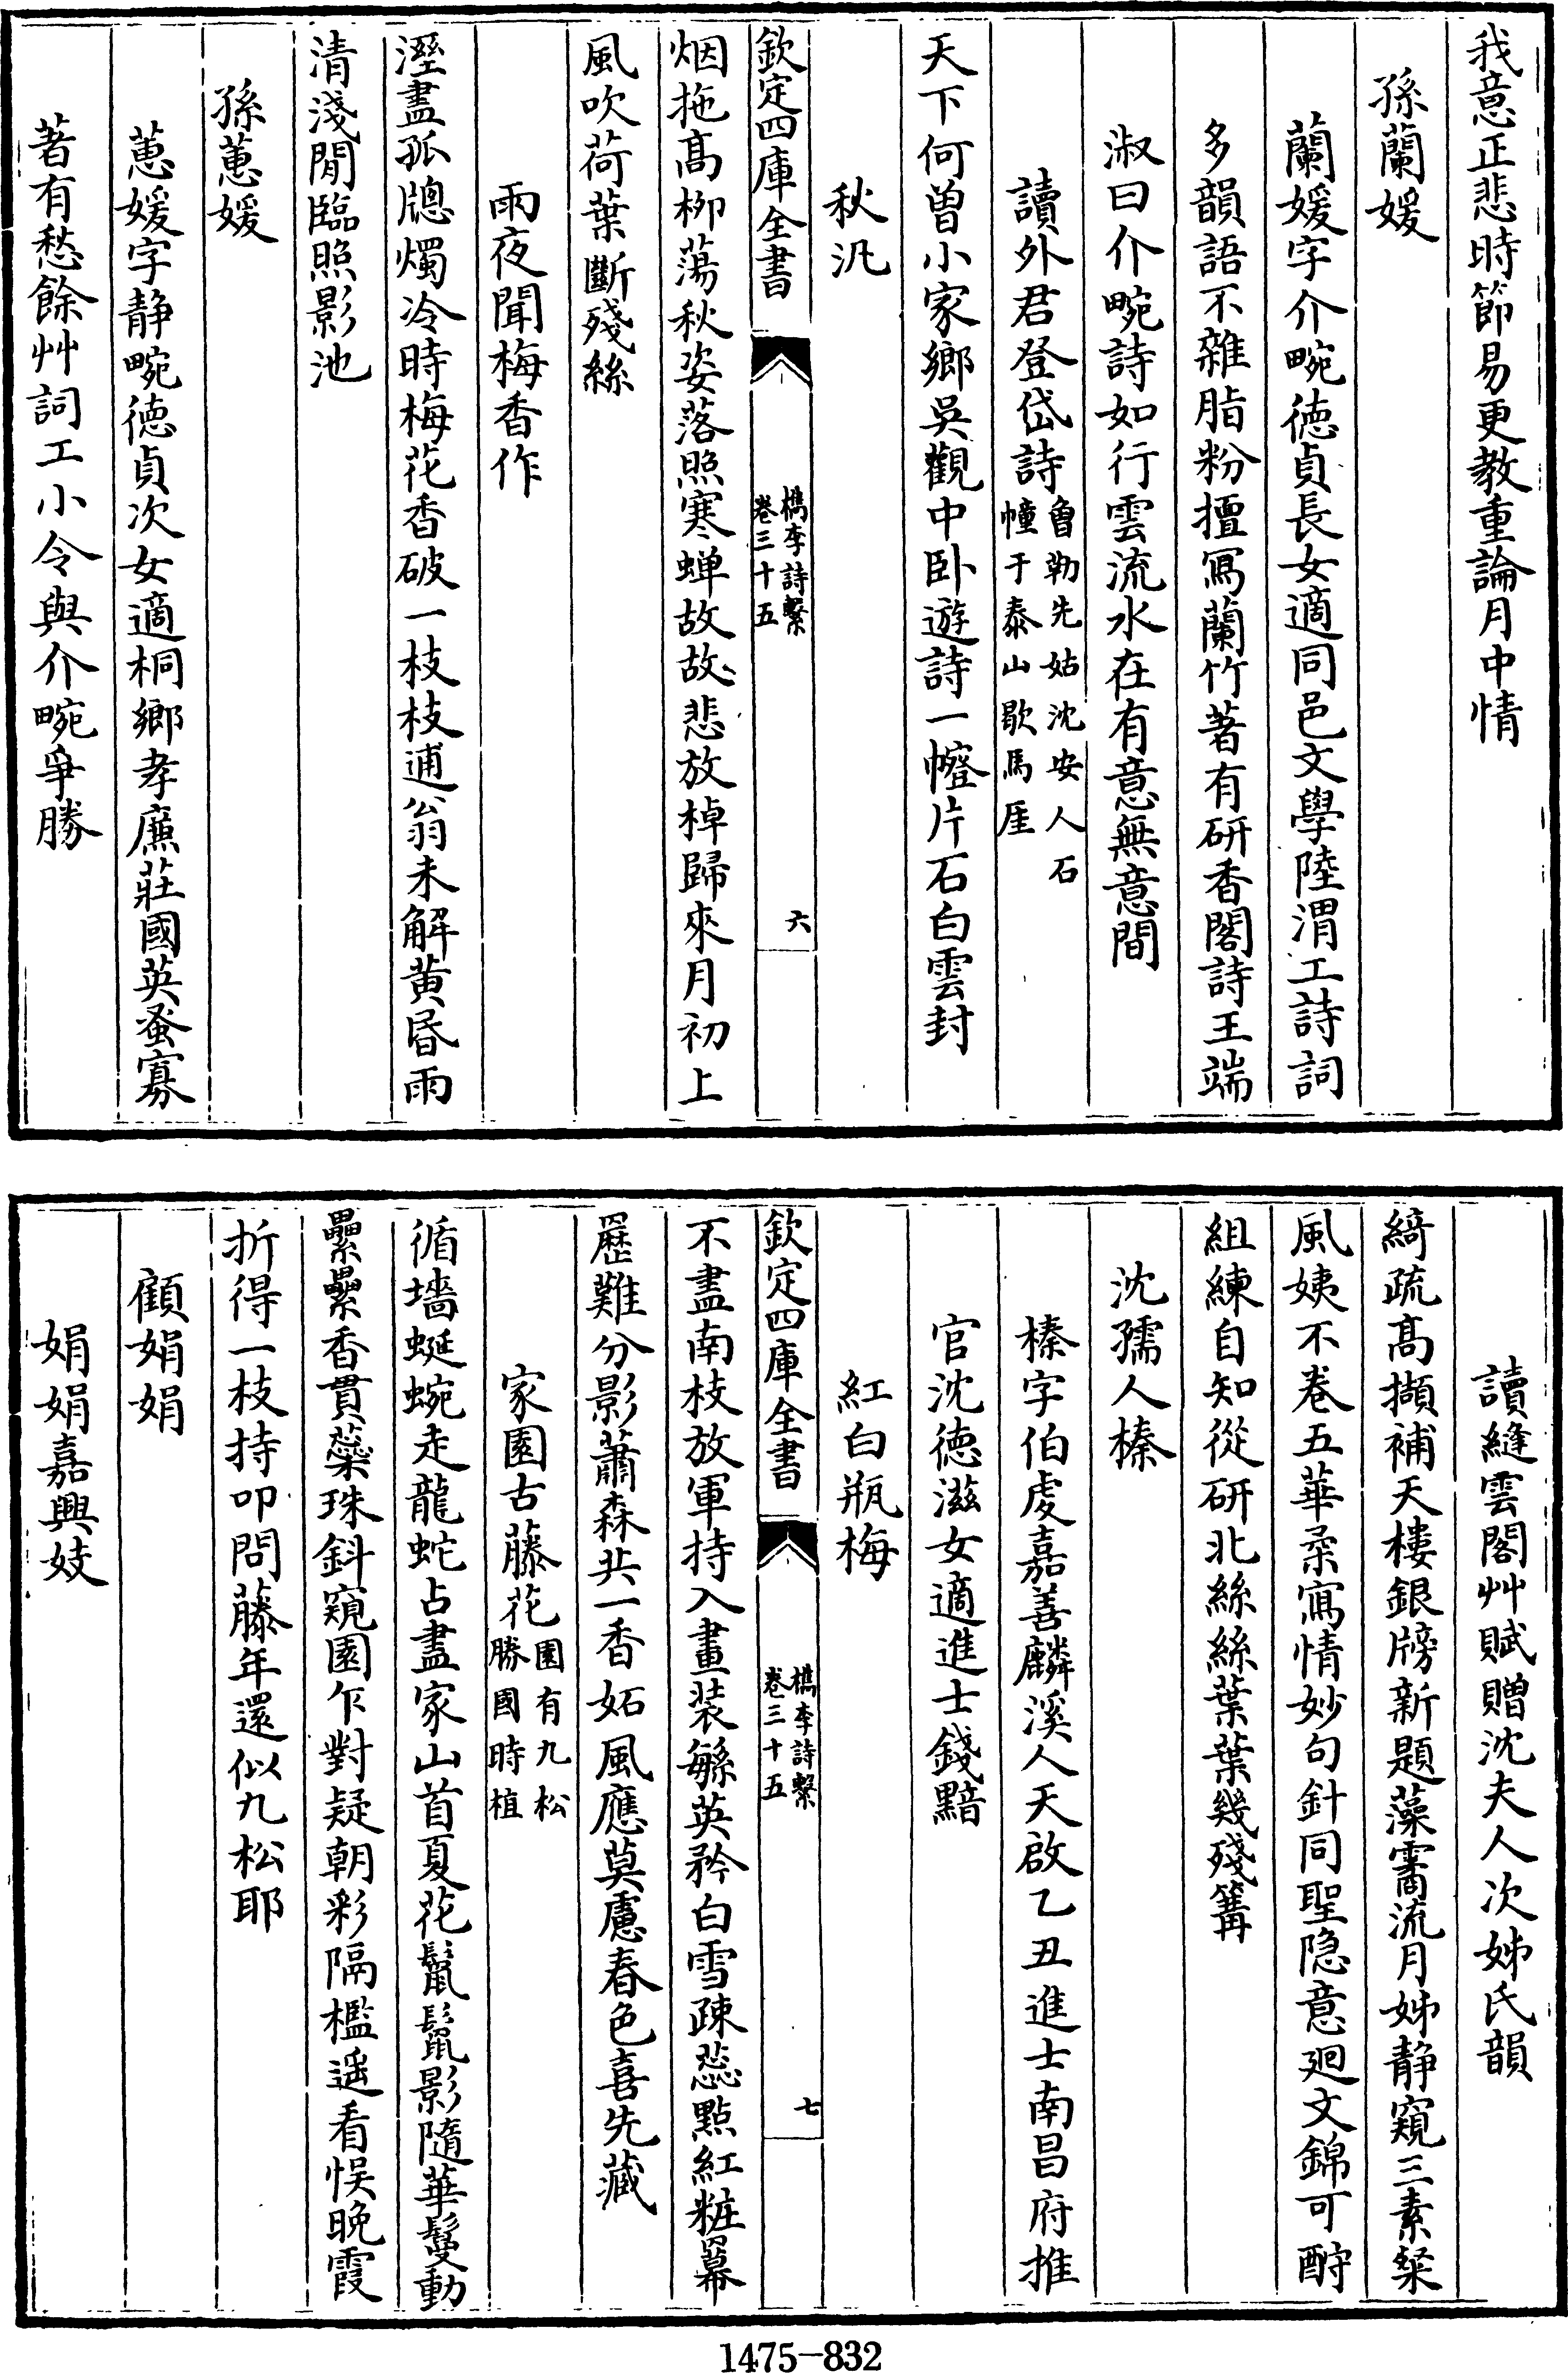 我意正悲時節易更教重論月中情
孫蘭媛
蘭媛字介畹徳貞長女適同邑文學陸渭工詩詞
多韻語不雜脂粉擅寫蘭竹著有研香閣詩王端
淑曰介畹詩如行雲流水在有意無意間
讀外君登岱詩魯勒先姑沈安人石
幢于泰山歇馬厓
天下何曾小家鄉吳觀中卧遊詩一幢片石白雲封
秋汎
欽定四庫全書
檇李詩繫
卷三十五
六
烟拖髙栁蕩秋姿落照寒蝉故故悲放棹歸來月初上
風吹荷葉斷殘絲
雨夜聞梅香作
溼盡孤牕燭冷時梅花香破一枝枝逋翁未解黄昏雨
清淺閒臨照影池
孫蕙媛
蕙媛字静畹徳貞次女適桐鄉孝廉莊國英蚤寡
著有愁餘艸詞工小令與介畹爭勝
讀縫雲閣艸賦贈沈夫人次姊氏韻
綺疏髙擷補天樓銀牓新題藻霱流月姊静窺三素桬
風姨不卷五華柔寫情妙句針同聖隠意廻文錦可酧
組練自知從研北絲絲葉葉幾殘篝
沈孺人榛
榛字伯虔嘉善麟溪人天啟乙丑進士南昌府推
官沈徳滋女適進士錢黯
紅白瓶梅
欽定四庫全書
檇李詩繫
卷三十五
七
不盡南枝放軍持入畫装緐英矜白雪疎蕊點紅粧羃
歴難分影蕭森共一香妬風應莫慮春色喜先藏
家園古藤花園有九松
勝國時植
循墻蜒蜿走龍蛇占盡家山首夏花鬣鬣影隨華鬘動
纍纍香貫蘂珠斜窺園乍對疑朝彩隔檻遥看悞晚霞
折得一枝持叩問藤年還似九松耶
顧娟娟
娟娟嘉興妓
1475-832